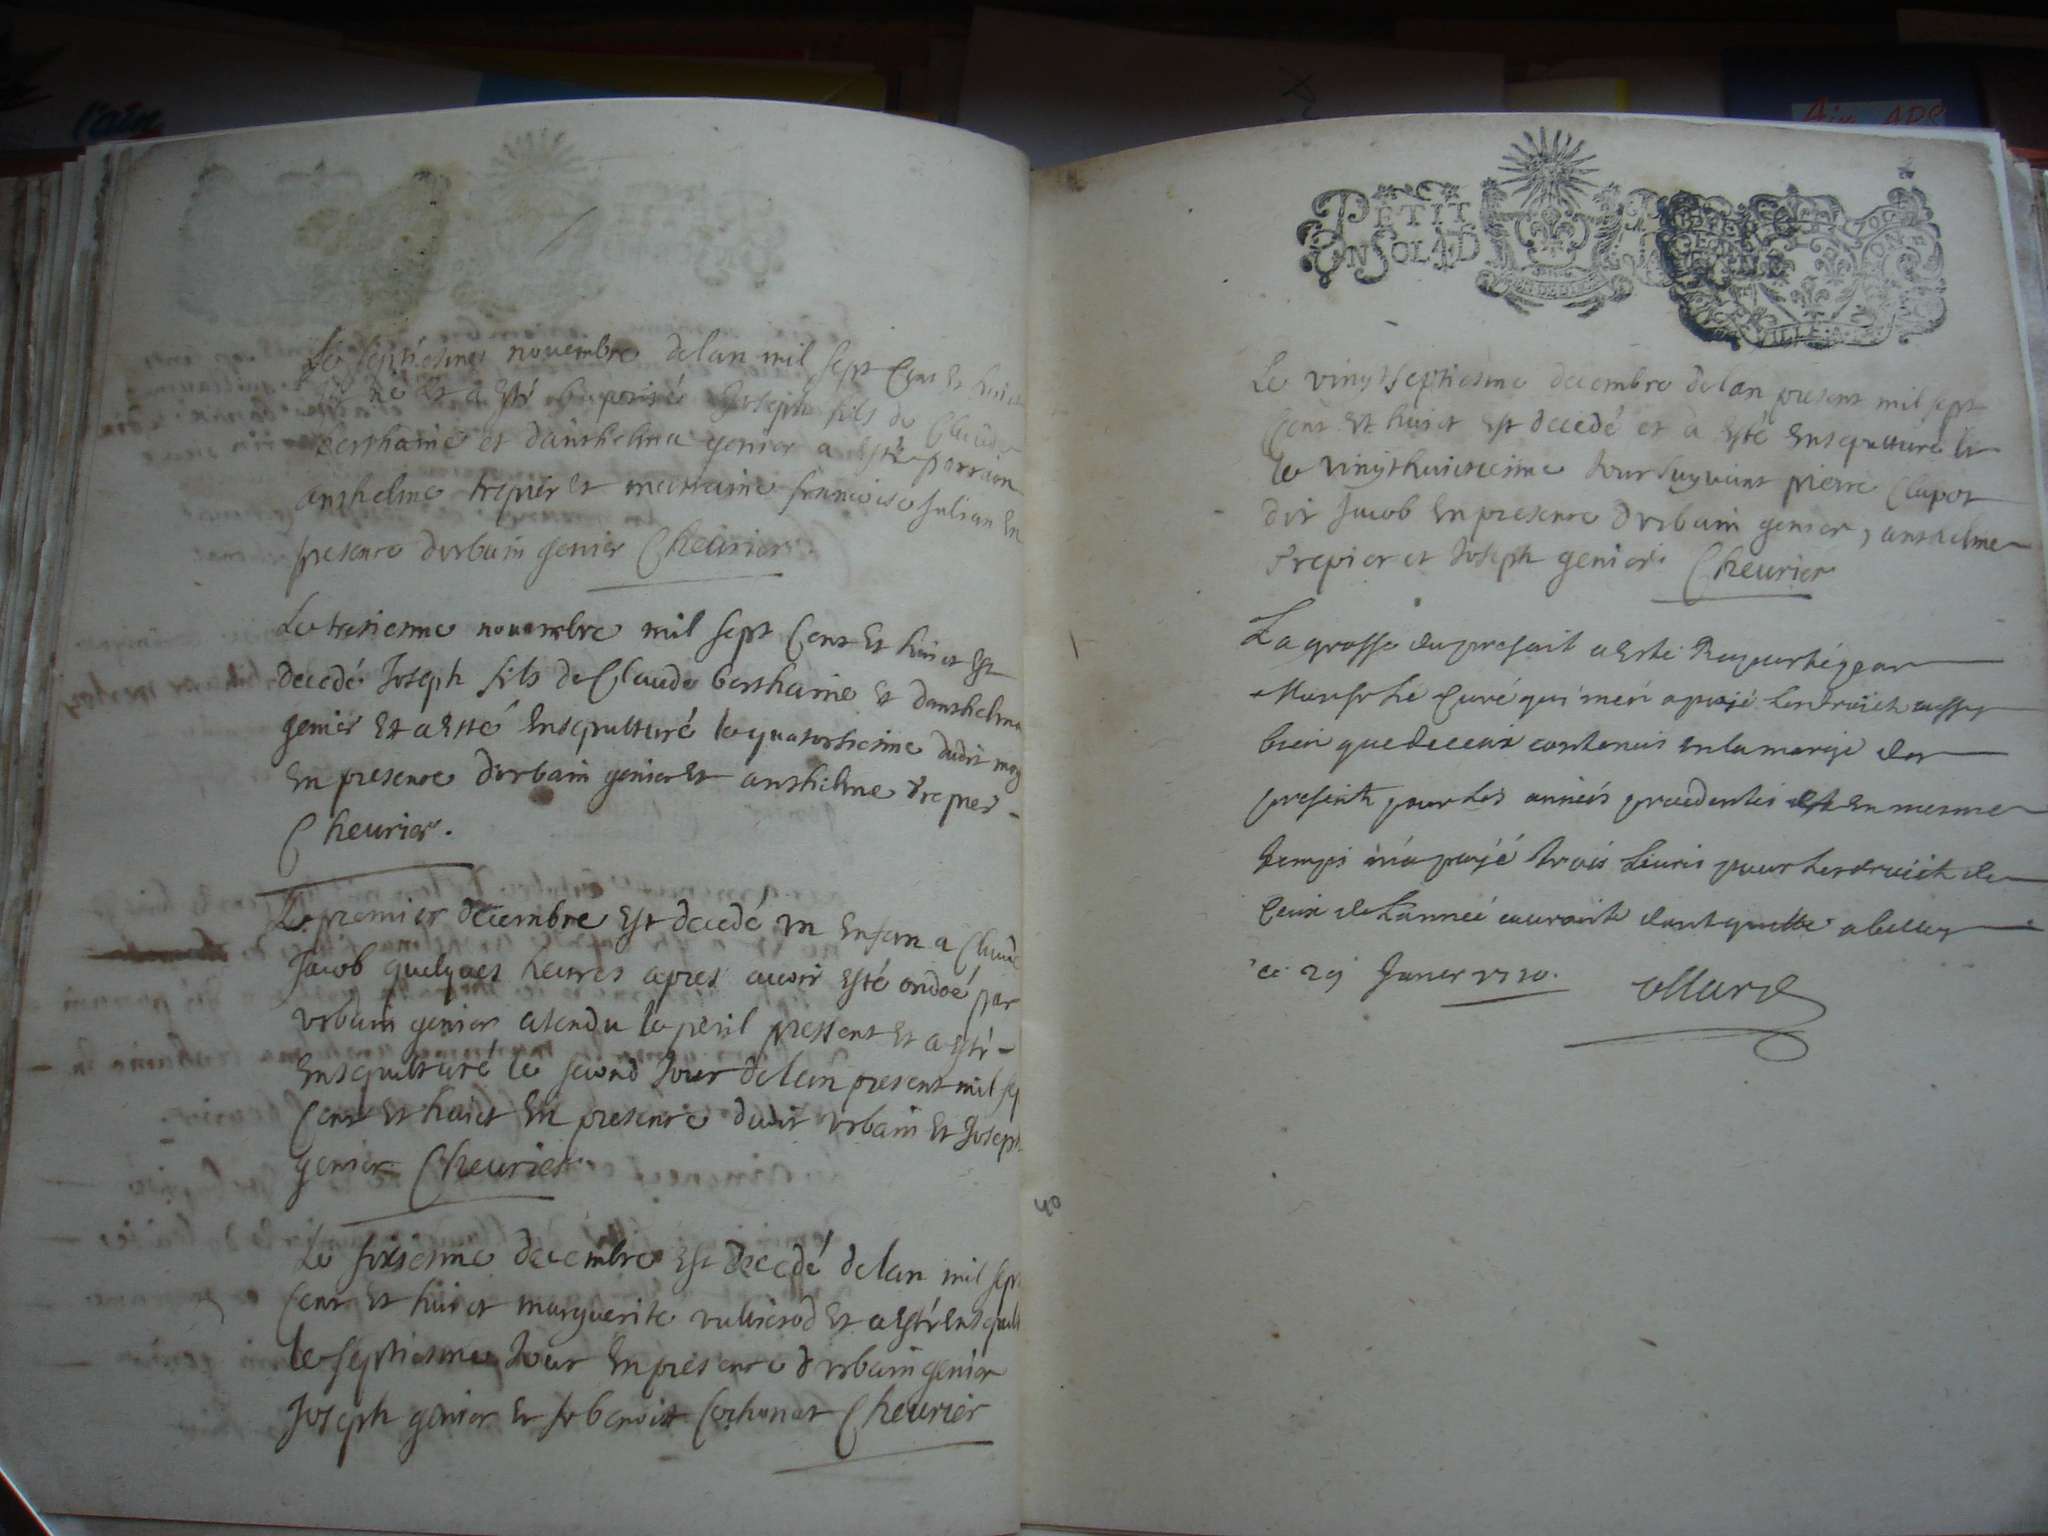 Le septiesme novembre de lan mil sept Cent et huict
né et a esté baptisé Joseph fils de Claude
berthaine et danthelma genier a esté parrain
anthelme trepier et marraine francoise Julian En
presence durbain genier Cheurier
Le tresiesme novembre mil sept Cent Et huict Est
decedé Joseph fils de Claude berthaine Et danthelma
genier Et a esté Ensepulturé le quatorsiesme dudit moy
En presence durbain genier Et anthelme trepier
Cheurier.
Le premier decembre Est decedé un Enfan a Claude
Jacob quelques heures apres avoir Esté ondoé par
urbain genier atendu le peril pressent Et a esté
Ensepulturé le second Jour de lan present mil sep
Cent Et huict En presence dudit urbain Et Joseph
genier Cheurier
Le sixiesme decembre Est decedé de lan mil sept
Cent Et huict marguerite Et a Esté Ensepult
le septiesme Jour En presence d urbain genier
Joseph genier Et benoist Cochonat Cheurier
40
PETIT
ON SOL
Le vingt septiesme decembre de lan present mil sept
Cent Et huict Est decedé et a Esté Ensepulturé le
le vingt huictiesme Jour suyvant pierre Clapot
dit Jacob En presence durbain genier, anthelme
trepier et Joseph genier. Cheurier
La grosse du present a esté Raportée par
Monsr le Curé qui men a payé les droicts aussy
bien que de ceux contenus en la marge des
presents pour les années precedentes et En mesme
temps m'a payé trois Livres pour les droicts de
Ceux de L'année courante dont quitte a belley
ce 29 Janer 1710.